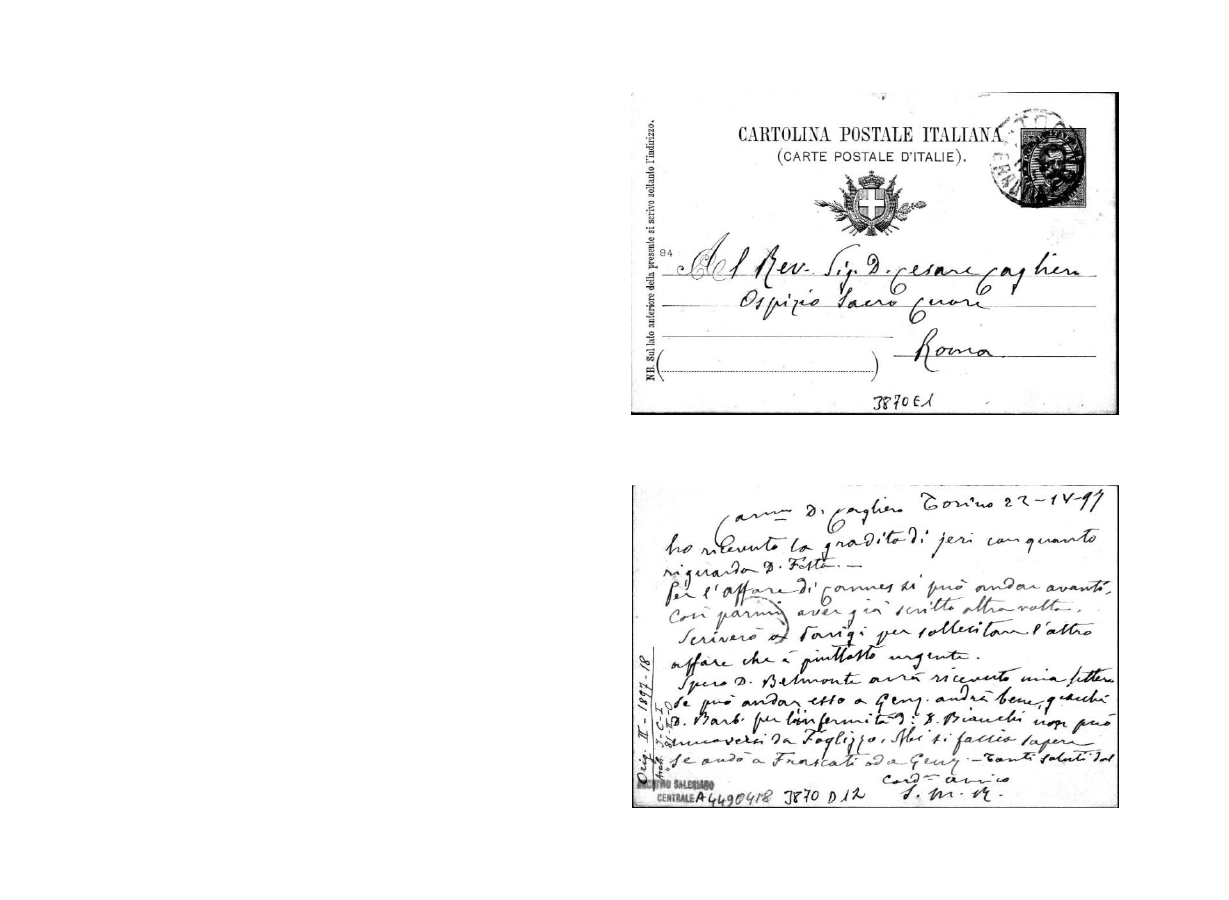 CARTOLINA POSTALE ITALIANA
(CARTE POSTALE D'ITALIE).
NB. Sul lato anteriore della presente si scrive soltanto l'indirizzo.
94
Al Rev. Sig. D. Cesare Cagliero
Ospizio Sacro Cuore
Roma
3870 E1
Car.mo D. Cagliero Torino 22-IV-97
ho ricevuto la gradita di jeri con quanto
riguarda D. Festa. —
Per l'affare di Cannes si può andar avanti,
Così parmi aver già scritto altra volta.
Scriverò a Parigi per sollecitare l'altro
affare che è piuttosto urgente.
Spero D. Belmonte avrà ricevuto mia lettera
Se può andar esso a Genz. andrà bene, giacchè
D. Barb. per l'infermità di D. Bianchi non può
muoversi da Foglizzo. Mi si faccia sapere
se andò a Frascati od a Genz. — Tanti saluti dal
Cord.mo amico
S. M. R.
Orig. III - 1897-18
ARCHIVIO SALESIANO
CENTRALE A4490418 3870 D12